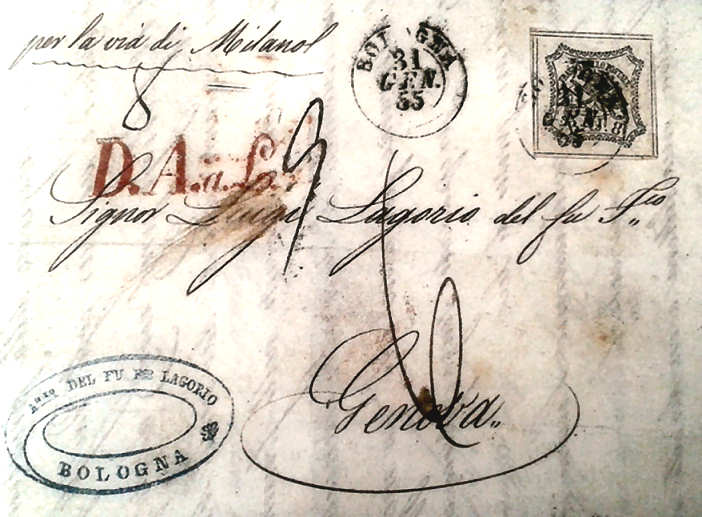 per la via di Milano
BOLOGNA
31
GEN.
55
31
GEN.
55
8
D. A. a. L. 
Signor Luigi Lagorio del fu F.co
Genova.
Anto DEL FU FCE LAGORIO
BOLOGNA